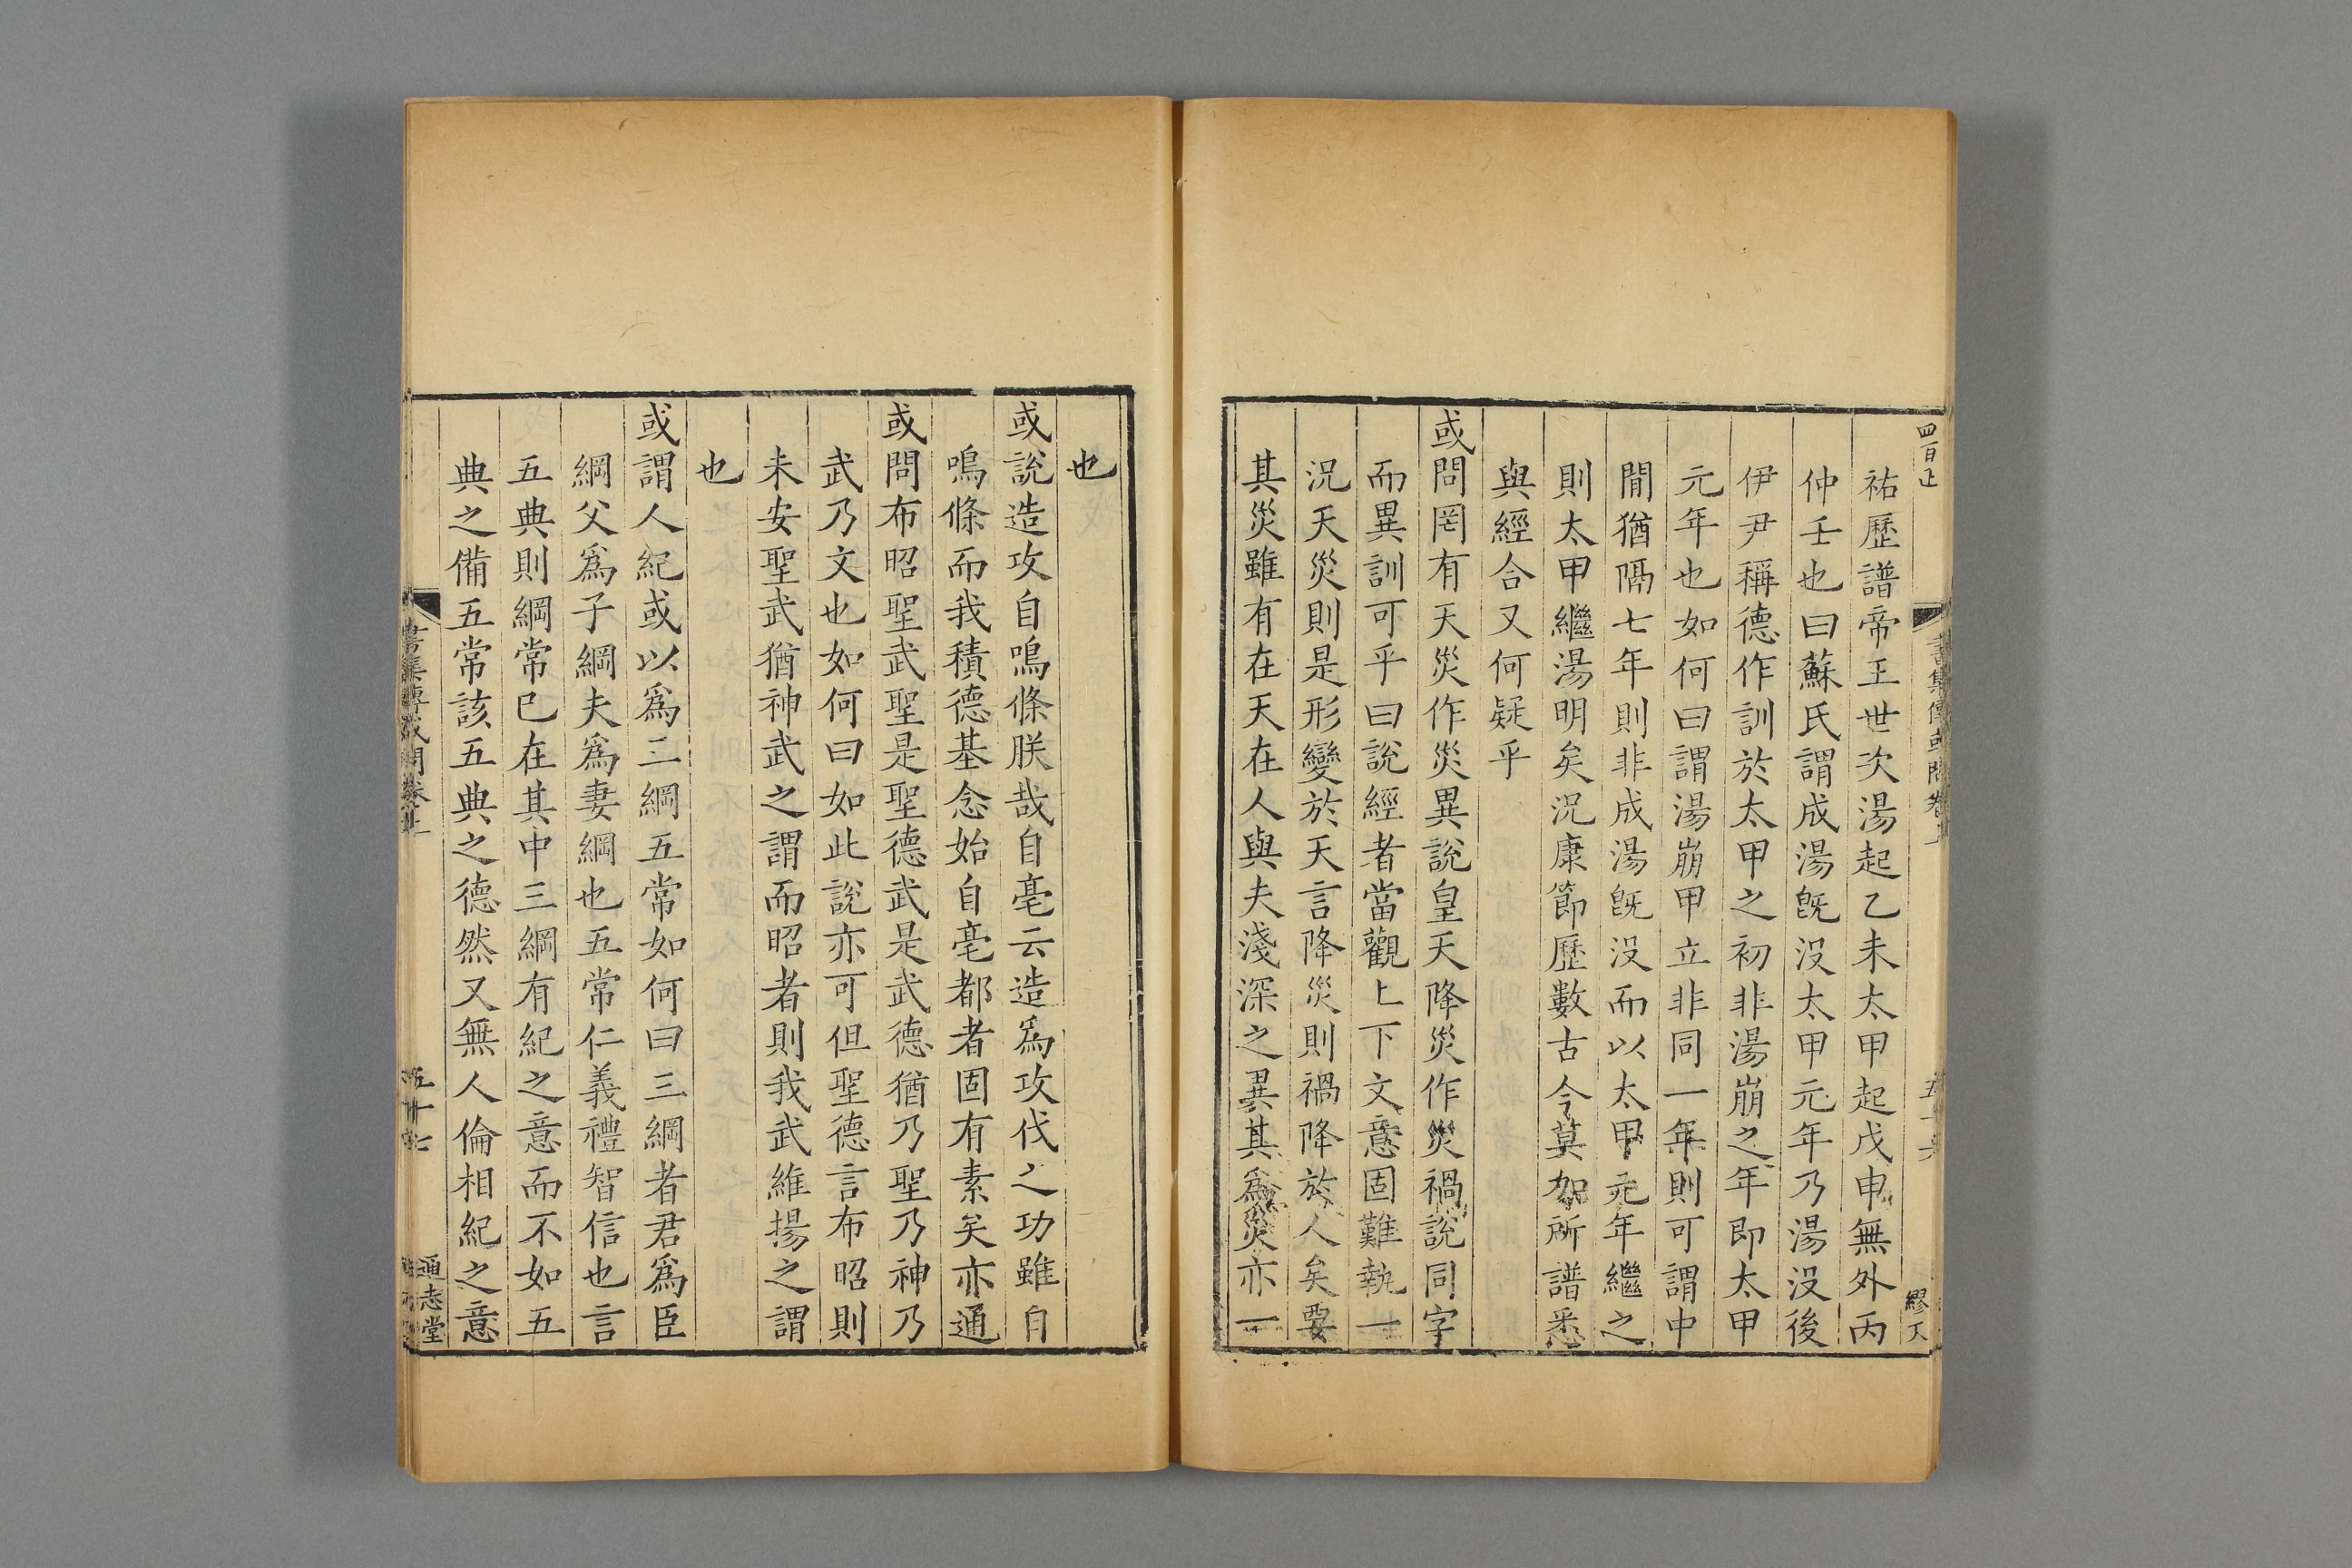 四百止
書集傳或問卷上
繆仄
祐歷譜帝王世次湯起乙未太甲起戊申無外丙
仲壬也曰蘇氏謂成湯旣没太甲元年乃湯没後
伊尹稱德作訓於太甲之初非湯崩之年即太甲
元年也如何曰謂湯崩甲立非同一年則可謂中
間猶隔七年則非成湯旣没而以太甲元年繼之
則太甲繼湯明矣況康節歷數古今莫加所譜悉
與經合又何疑乎
或問罔有天災作災異說皇天降災作災禍說同字
而異訓可乎曰說經者當觀上下文意固難執一
況天災則是形變於天言降災則禍降於人矣要
其災雖有在天在人與夫淺深之異其為災亦一
也
或說造攻自鳴條朕哉自亳云造爲攻伐之功雖自
鳴條而我積德基念始自亳都者固有素矣亦通
或問布昭聖武聖是聖德武是武德猶乃聖乃神乃
武乃文也如何曰如此說亦可但聖德言布昭則
未安聖武猶神武之謂而昭者則我武維揚之謂
也
或謂人紀或以爲三綱五常如何曰三綱者君爲臣
綱父爲子綱夫爲妻綱也五常仁義禮智信也言
五典則綱常已在其中三綱有紀之意而不如五
典之備五常該五典之德然又無人倫相紀之意
書集傳或問卷上
五十七
通志堂